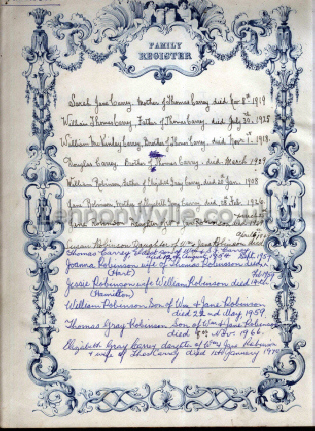 FAMILY
REGISTER
Sarah Jane Carrey, Mother of Thomas Carrey died Nov 8th 1919
William Thomas Carrey, Father of Thomas Carrey died July 30th 1925
William McKinley Carrey, Brother of Thomas Carrey, died Novr 1st 1918
Douglas Carrey. Brother of Thomas Carrey. died. March 1925
William Robinson, Father of Elizabeth Gray Carrey, died 20th Jan. 1908
Jane Robinson, Mother of Elizabeth Gray Carrey died 28 Feb 1926
Jane Robinson Daughter of Jane Robinson
LennonWylie.co.uk
Susan Robinson Daughter of Wm & Jane Robinson died
Thomas Carrey
died 12th August 1954
Joanna Robinson wife of Thomas Robinson died
(Hart)
Sept 1959
Jessie Robinson wife William Robinson died
(Hamilton)
Feb 1959
William Robinson Son of Wm & Jane Robinson
died 22nd May 1959.
Thomas Gray Robinson Son of Wm & Jane Robinson
died Nov. 1966.
Elizabeth Gray Carrey daughter of Wm & Jane Robinson
& wife of Thos Carrey died January 1970